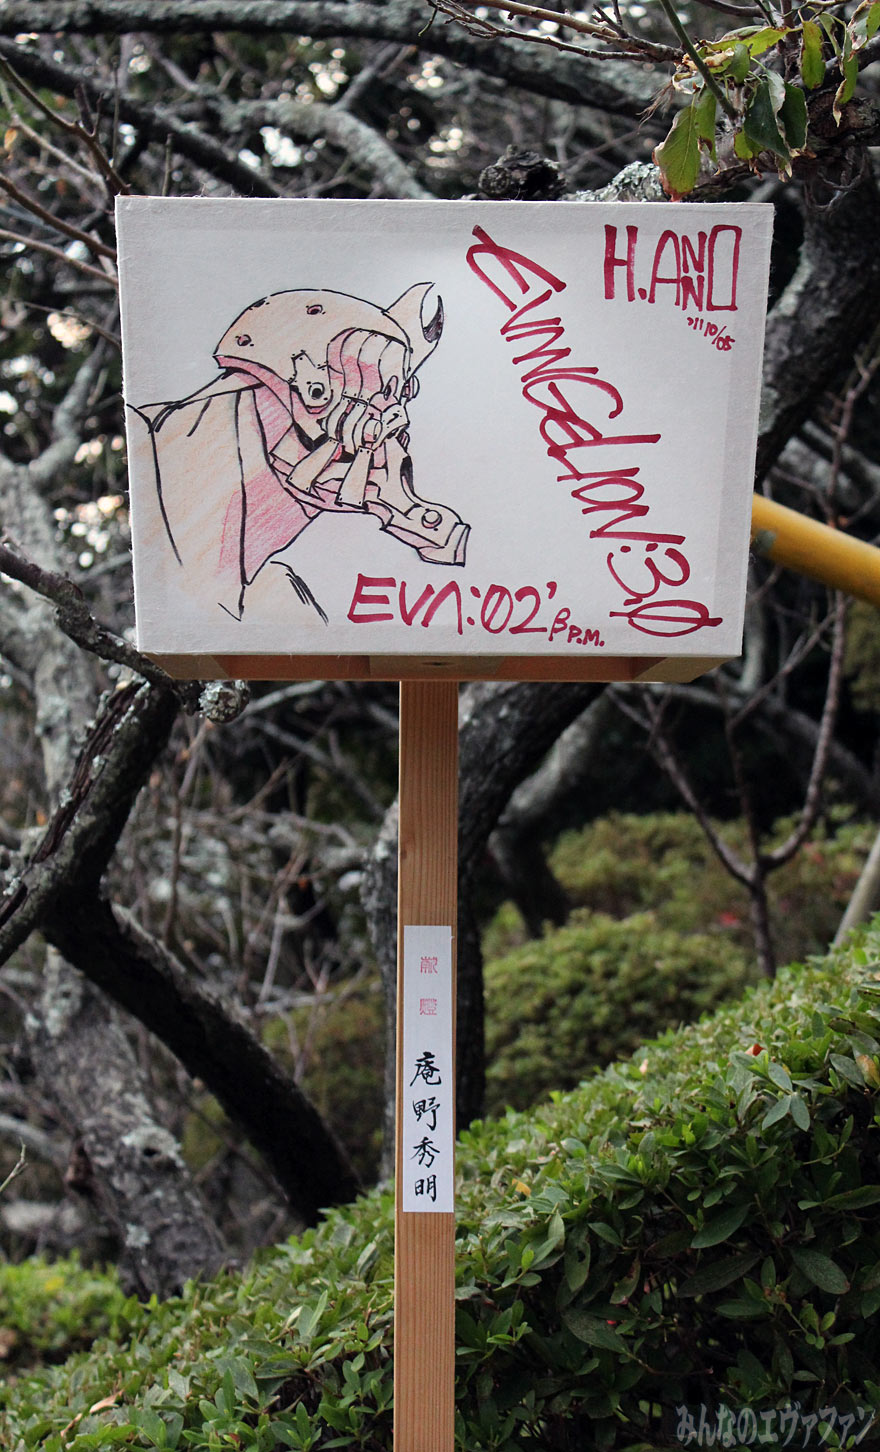 H.ANNO
'11 10/05
EVANGELION:3.0
EVA:02'β P.M.
献燈
庵野秀明
みんなのエヴァファン